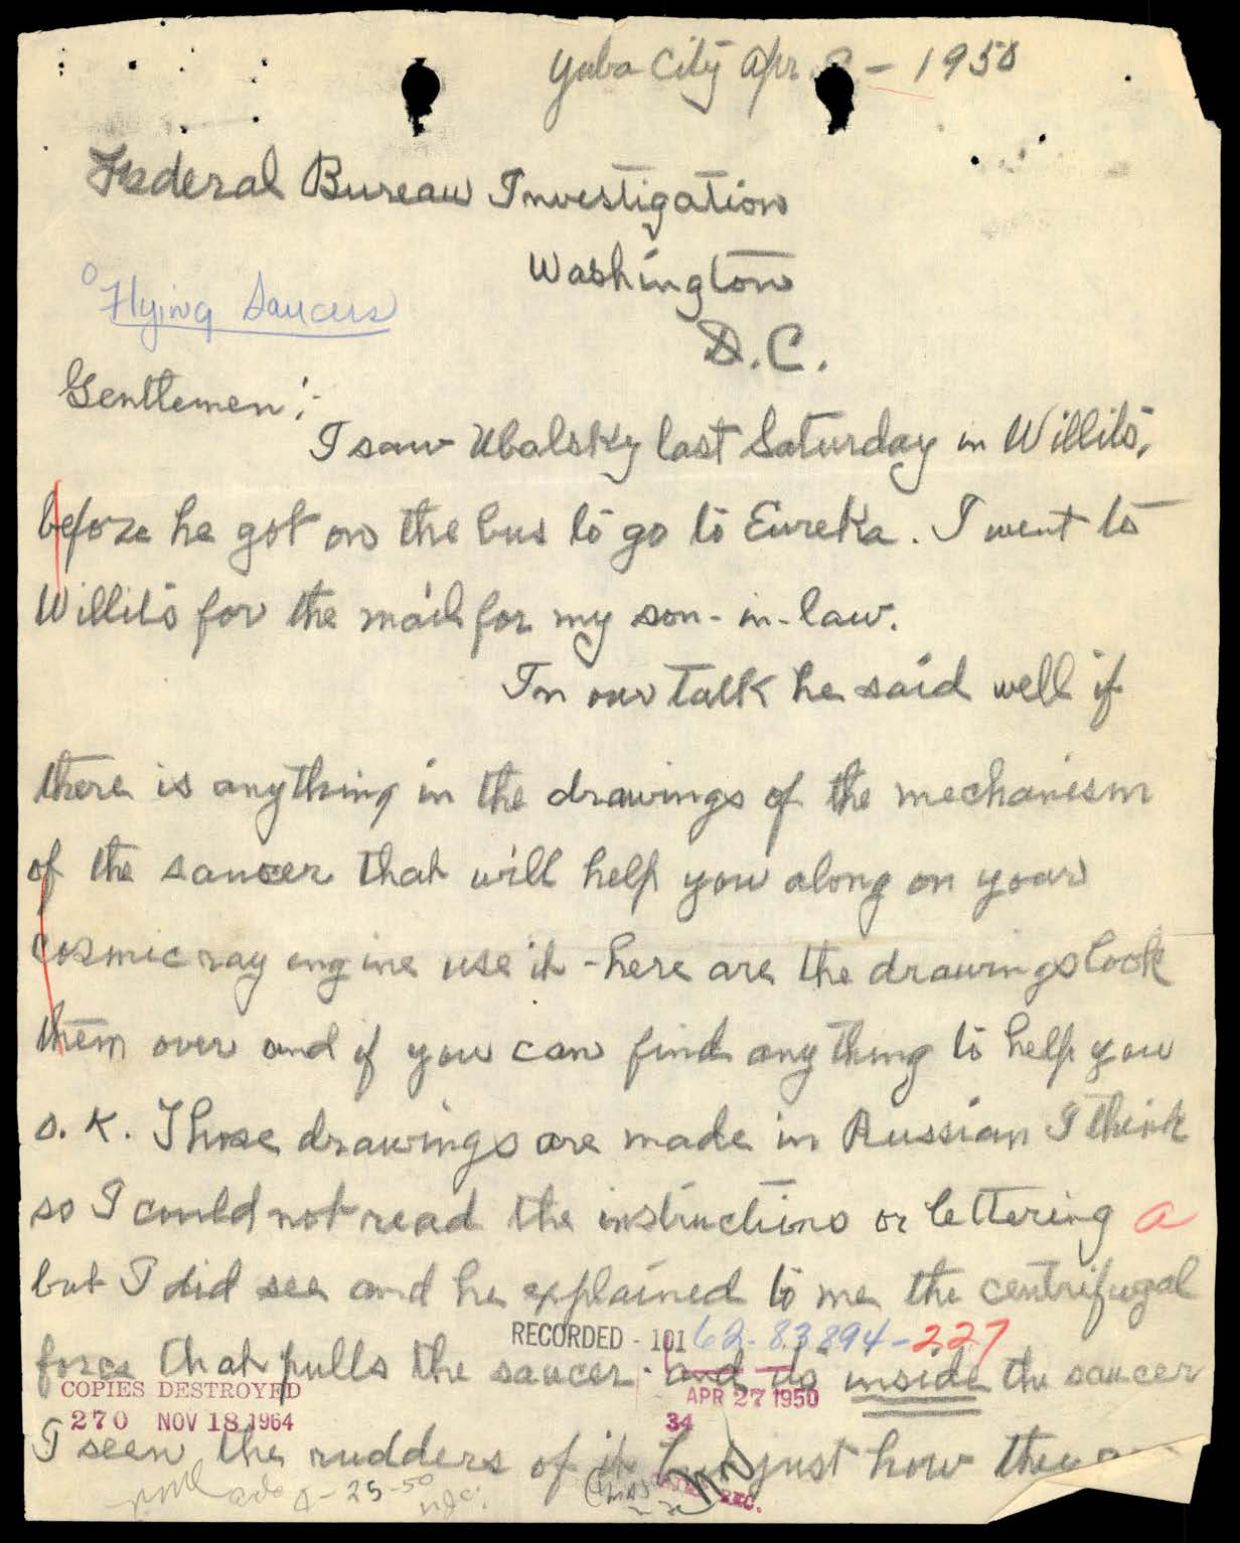 Yuba City Apr. – 1950
Federal Bureau Investigation
Washington
Flying Saucers
D.C.
Gentlemen:-
I saw Ubalsky last Saturday in Willits,
before he got on the bus to go to Eureka. I went to
Willits for the mail for my son-in-law.
In our talk he said well if
there is anything in the drawings of the mechanism
of the saucer that will help you along on your
cosmic ray engine use it - here are the drawings look
them over and if you can find anything to help you
o.K. Those drawings are made in Russian I think
so I could not read the instructions or lettering a
but I did see and he explained to me the centrifugal
RECORDED - 101 62-83894-227
force that pulls the saucer and its inside the saucer
COPIES DESTROYED
APR 27 1950
270 NOV 18 1964
34
I seen the rudders of it but just how they
4-25-50
REC.